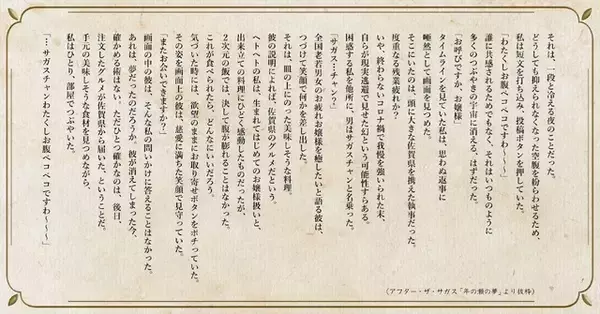 それは、一段と冷える夜のことだった。
どうしても抑えられなくなった空腹を紛らわせるため、
私は短文を打ち込み、投稿ボタンを押していた。
「わたくしお腹ペコペコですわ〜〜〜〜」
誰に共感されるためでもなく、それはいつものように
多くのつぶやきの宇宙に消える、はずだった。
「お呼びですか、お嬢様」
タイムラインを見ていた私は、思わぬ返事に
唖然として画面を見つめた。
そこにいたのは、頭に大きな佐賀県を携えた執事だった。
度重なる残業疲れか？
いや、終わらないコロナ禍で我慢を強いられた末、
自らが現実逃避で見せた幻という可能性すらある。
困惑する私を他所に、男はサガスチャンと名乗った。
「サガス…チャン？」
全国老若男女のお疲れお嬢様を癒したいと語る彼は、
つづけて笑顔で何かを差し出した。
それは、皿の上にのった美味しそうな料理。
彼の説明によれば、佐賀県のグルメだという。
ヘトヘトの私は、生まれてはじめてのお嬢様扱いと、
出来立ての料理にひどく感動したものだったが、
2次元の飯では、決して腹が膨れることはなかった。
これが食べられたら、どんなにいいだろう。
気づいた時には、欲望のままにお取り寄せボタンをポチっていた。
その姿を画面上の彼は、慈愛に満ちた笑顔で見守っていた。
「またお会いできますか？」
画面の中の彼は、そんな私の問いかけに答えることはなかった。
あれは、夢だったのだろうか。彼が消えてしまった今、
確かめる術はない。ただひとつ確かなのは、後日、
注文したグルメが佐賀県から届いた、ということだ。
手元の美味しそうな食材を見つめながら、
私はひとり、部屋でつぶやいた。
「…サガスチャンわたくしお腹ペコペコですわ〜〜〜〜」
（アフター・ザ・サガス「年の瀬の夢」より抜粋）